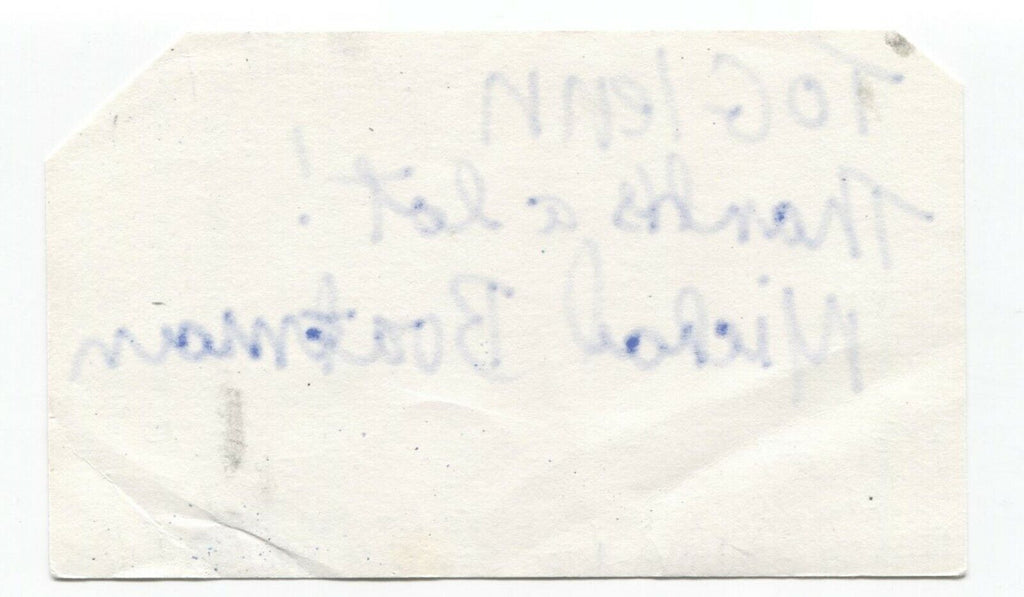 To Glenn
Thanks a lot!
Michael Boatman